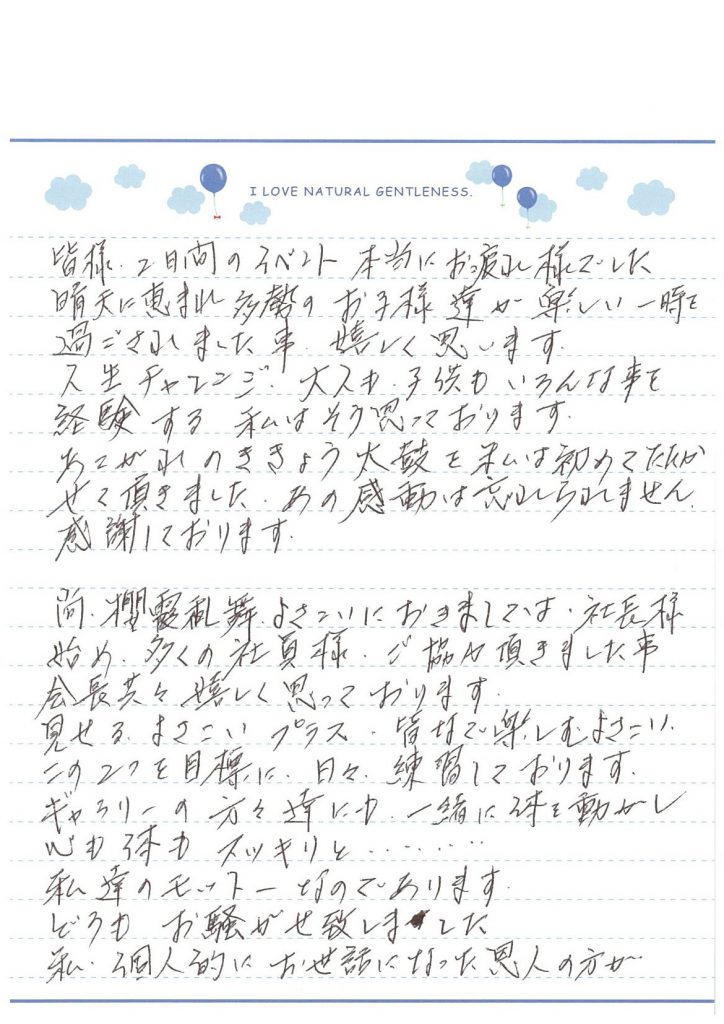 I LOVE NATURAL GENTLENESS.
皆様、2日間のイベント 本当にお疲れ様でした
晴天に恵まれ 多勢の お子様達が 楽しい一時を
過ごされました事、嬉しく思います。
人生チャレンジ、大人も、子供も いろんな事を
経験する 私はそう思っております。
あこがれのききょう太鼓を私は初めてたたか
せて頂きました。あの感動は忘れられません。
感謝しております。
尚、櫻霞乱舞、よさこいにおきましては、社長様
始め、多くの社員様、ご協力頂きました事
会長共々嬉しく思っております。
見せる、よさこい プラス、皆なで楽しむよさこい、
この2つを目標に、日々、練習しております。
ギャラリーの方々達にも、一緒に体を動かし
心も体も スッキリと・・・・・・・・
私達のモットーなのであります。
どうも お騒がせ致しました
私、個人的にお世話になった恩人の方が